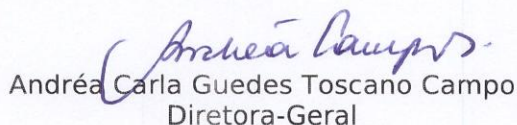 Andréa Campos
Andréa Carla Guedes Toscano Campo
Diretora-Geral